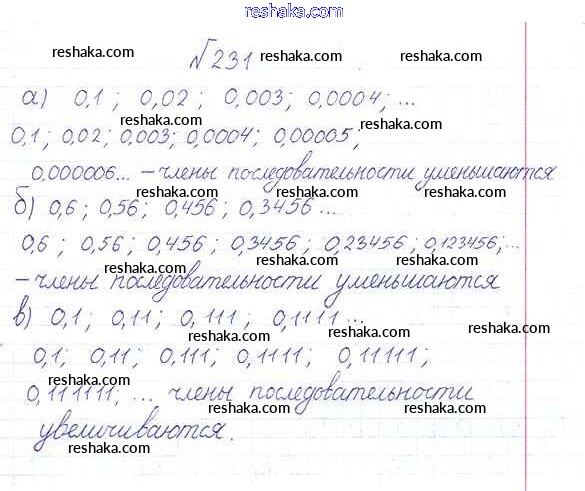 reshaka.com
reshaka.com reshaka.com reshaka.com
№ 231
а) 0,1; 0,02; 0,003; 0,0004; ...
reshaka.com reshaka.com reshaka.com
0,1; 0,02; 0,003; 0,0004; 0,00005;
0,000006... – члены последовательности уменьшаются
reshaka.com reshaka.com reshaka.com
б) 0,6; 0,56; 0,456; 0,3456...
0,6; 0,56; 0,456; 0,3456; 0,23456; 0,123456; ...
reshaka.com reshaka.com reshaka.com
– члены последовательности уменьшаются
в) 0,1; 0,11; 0,111; 0,1111...
reshaka.com reshaka.com reshaka.com
0,1; 0,11; 0,111; 0,1111; 0,11111;
reshaka.com
0,111111; ... члены последовательности
reshaka.com reshaka.com
увеличиваются.
reshaka.com